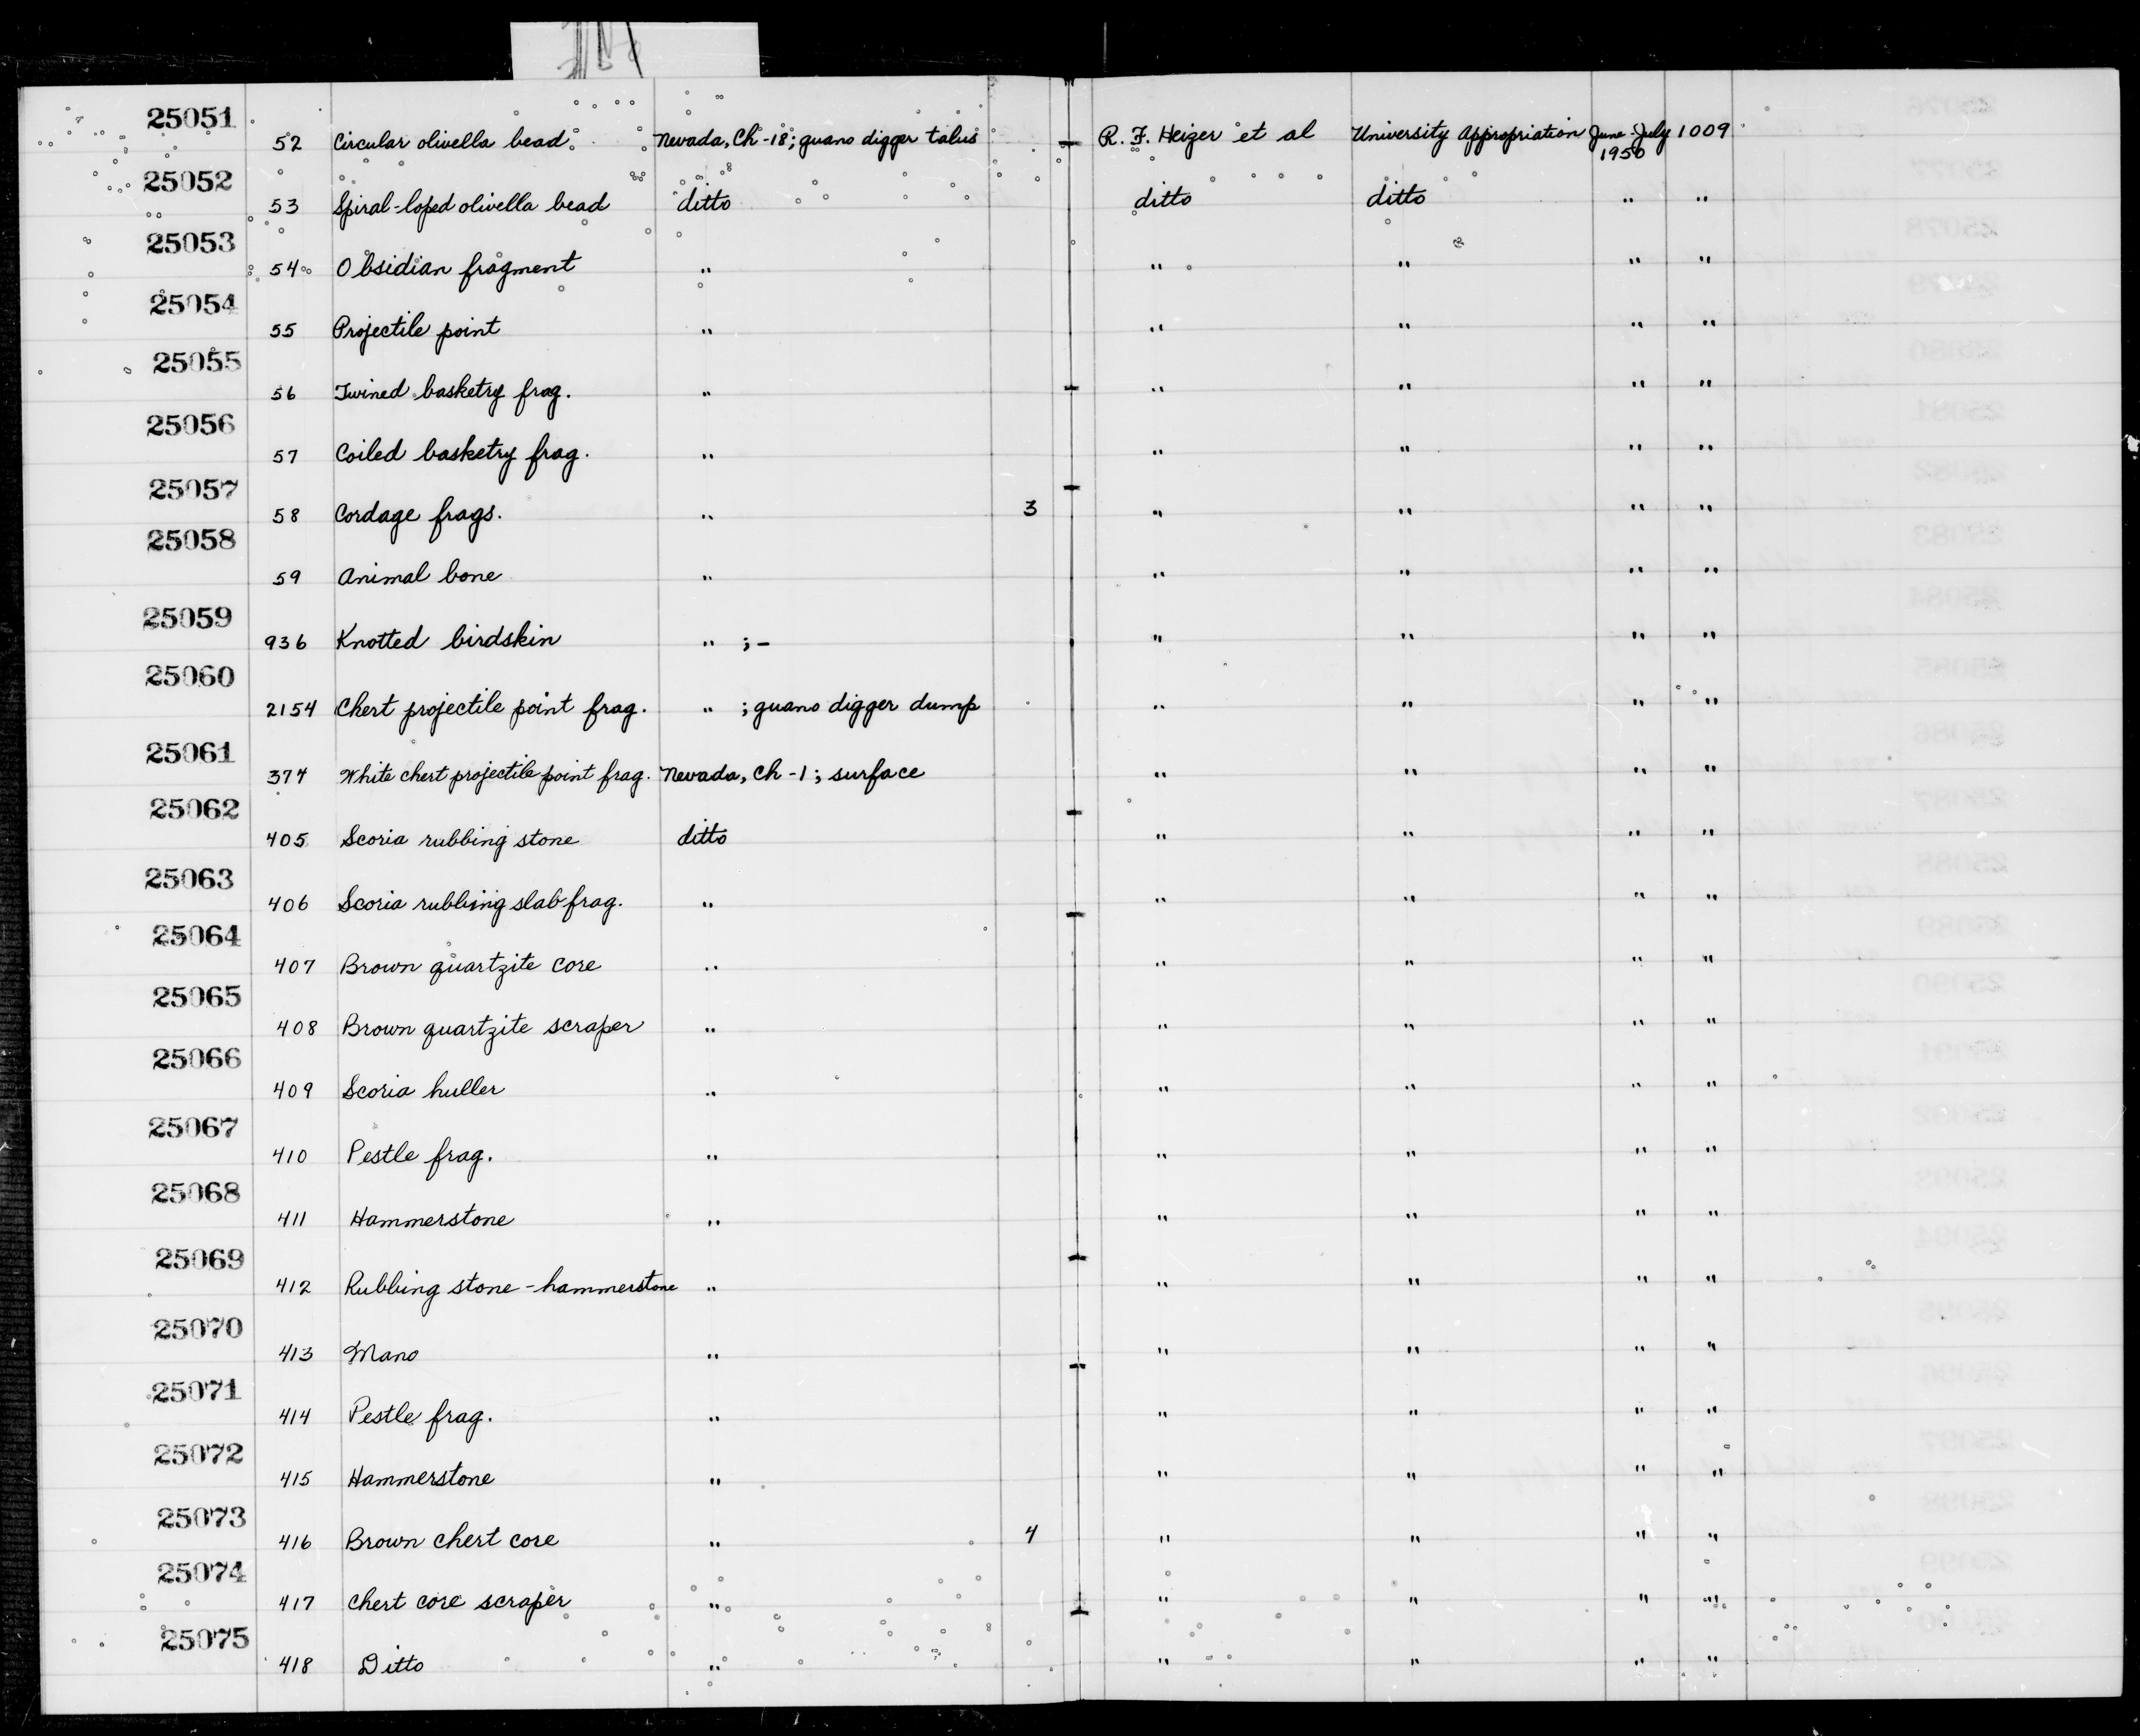 25051 52 Circular olivella bead Nevada, Ch-18; guano digger talus R. F. Heizer et al University Appropriation June-July 1950 1009
25052 53 Spiral-loped olivella bead ditto ditto ditto " "
25053 54 Obsidian fragment " " " " "
25054 55 Projectile point " " " " "
25055 56 Twined basketry frag. " " " " "
25056 57 Coiled basketry frag. " " " " "
25057 58 Cordage frags. " 3 " " " "
25058 59 Animal bone " " " " "
25059 936 Knotted birdskin " ; - " " " "
25060 2154 Chert projectile point frag. " ; guano digger dump " " " "
25061 374 White chert projectile point frag. Nevada, Ch-1; surface " " " "
25062 405 Scoria rubbing stone ditto " " " "
25063 406 Scoria rubbing slab frag. " " " " "
25064 407 Brown quartzite core " " " " "
25065 408 Brown quartzite scraper " " " " "
25066 409 Scoria huller " " " " "
25067 410 Pestle frag. " " " " "
25068 411 Hammerstone " " " " "
25069 412 Rubbing stone - hammerstone " " " " "
25070 413 Mano " " " " "
25071 414 Pestle frag. " " " " "
25072 415 Hammerstone " " " " "
25073 416 Brown chert core " 4 " " " "
25074 417 Chert core scraper " " " " "
25075 418 Ditto " " " " "